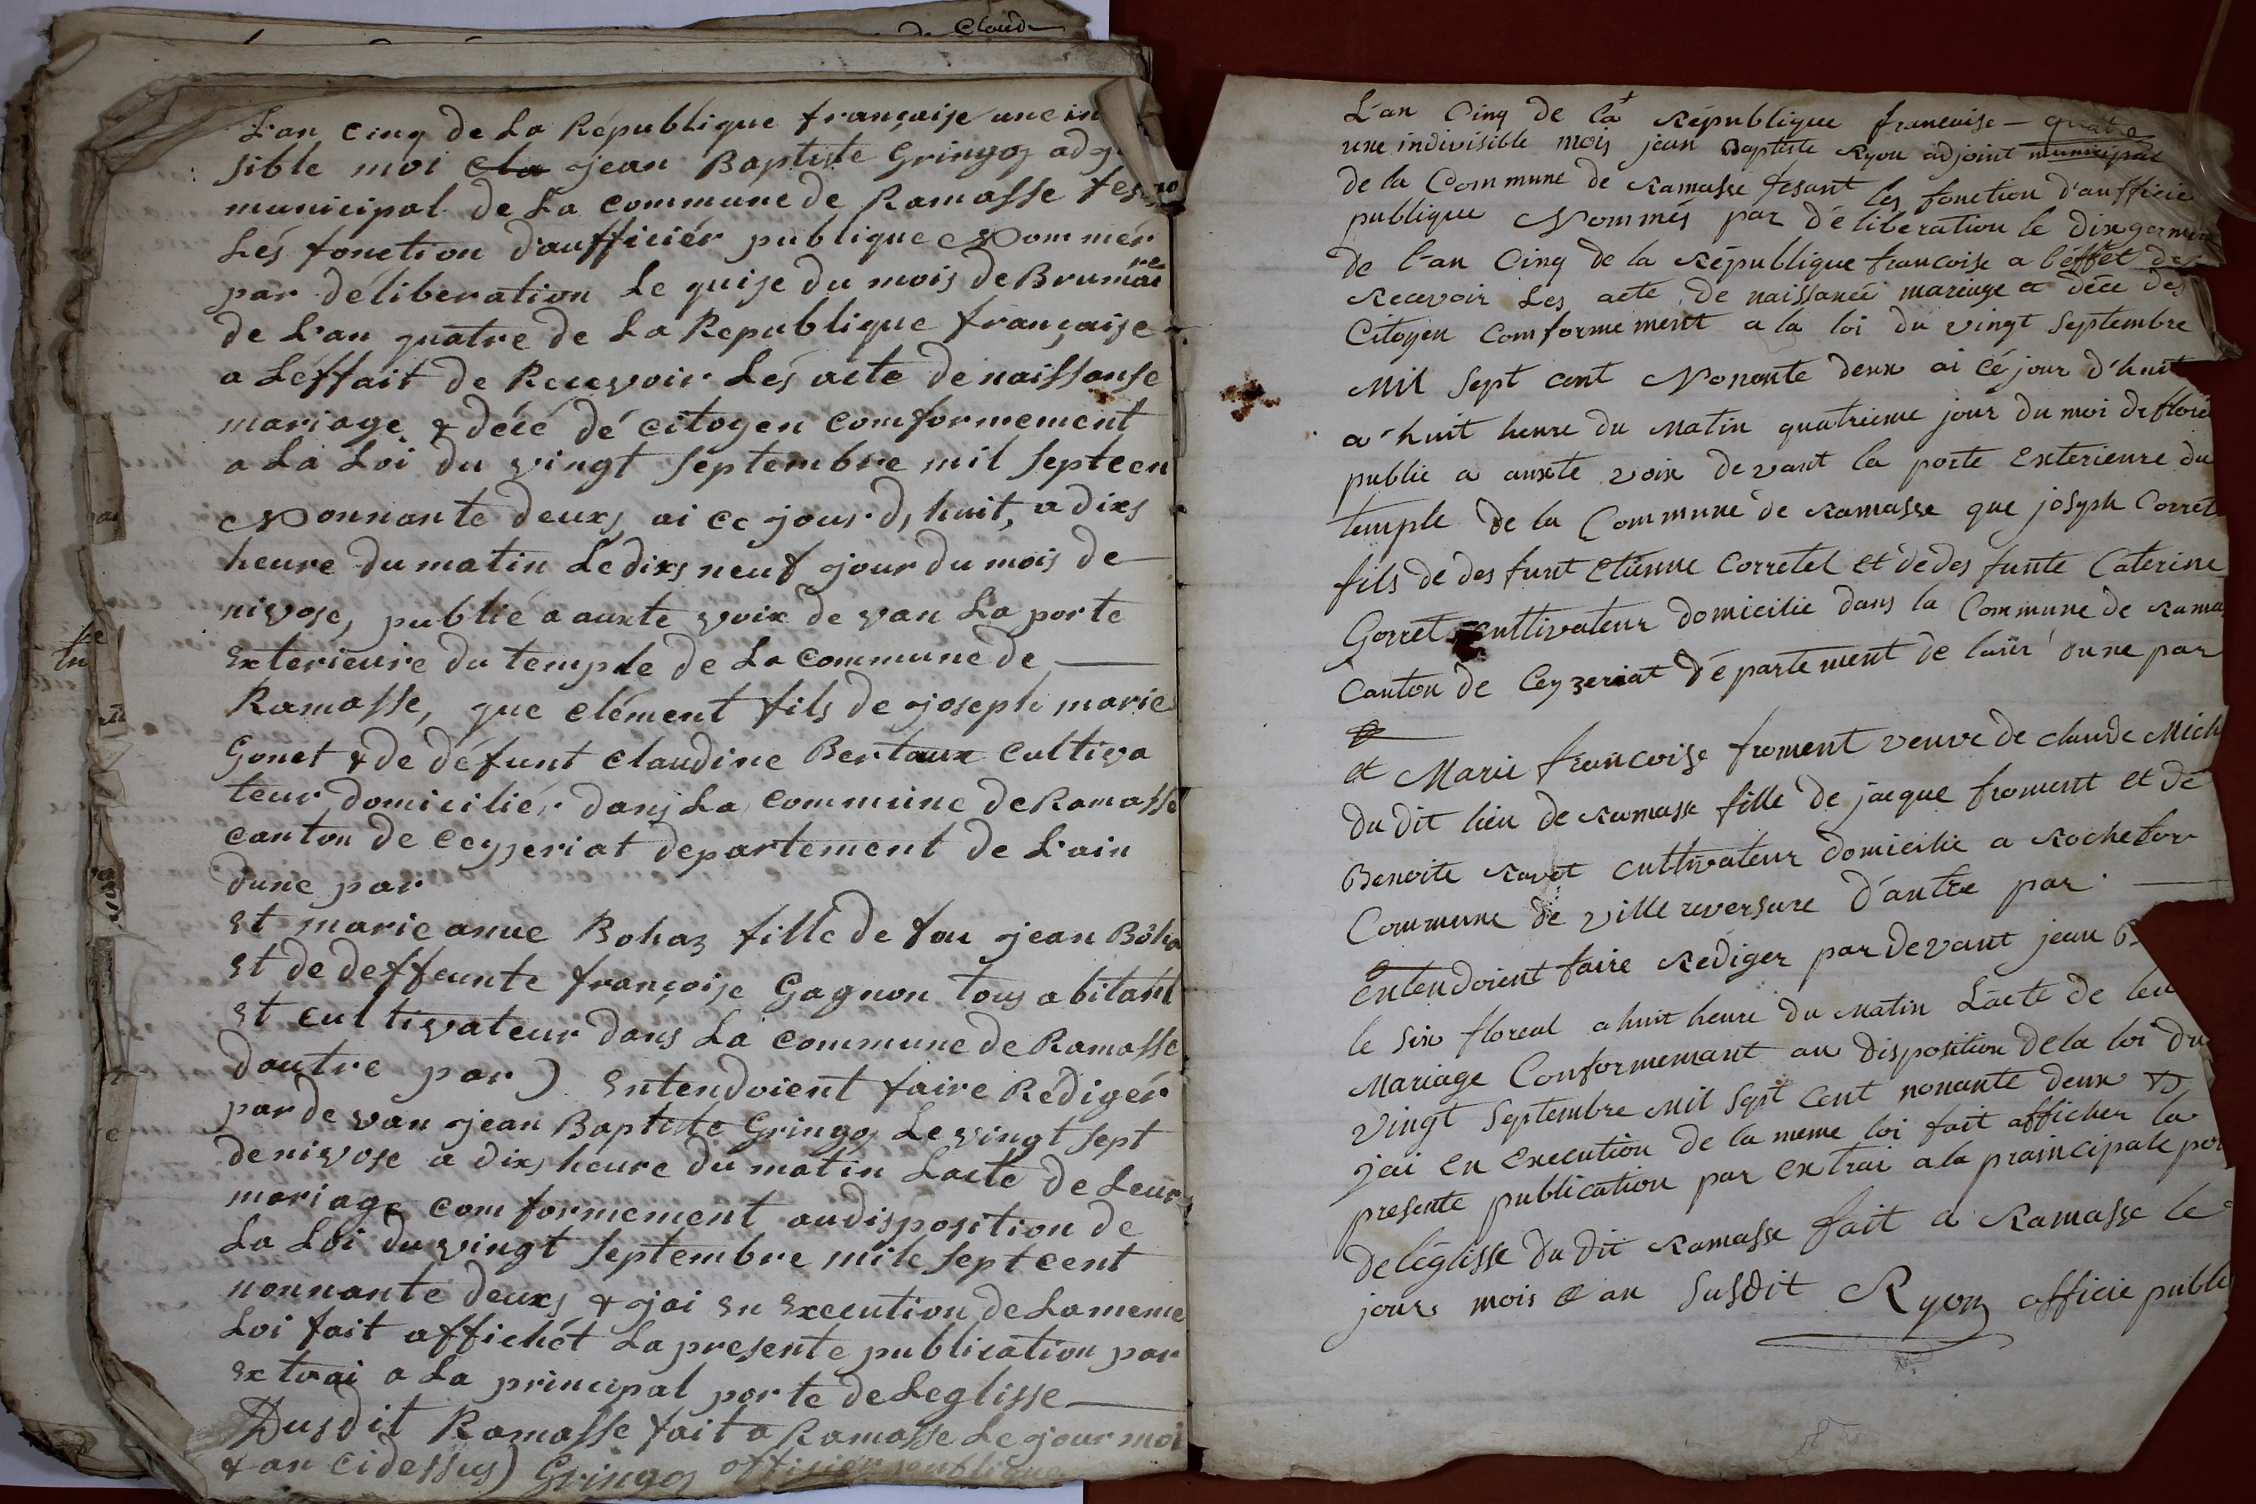 Claude
L'an cinq de La République française une in
sible moi cla jean Baptiste Gringoz adj
municipal de La commune de Ramasse fes
Lés fonction d'aufficiér publique Nommér
par déliberation Le quize du mois de Brumaire
de L'an quatre de La Republique française
a Léffait de Recevoir Lés acte de naissanse
mariage & décé dé citoyen comformement
a La Loi du vingt septembre mil septcen
Nonnante deuxs ai ce jour d, huit, a dixs
heure du matin Le dixs neuf jour du mois de
nivose, publié a auxte voix de van La porte
Exterieure du temple de La commune de
Ramasse, que clément fils de joseph marie
Gonet & de défunt claudine Bertaux cultiva
teur domiciliér dans La commune de Ramasse
canton de ceyzeriat departement de L'ain
dune par
Et marie anne Bohaz fille de fou jean Boha
Et de deffeunte françoise Gagnon tous abitant
Et cultivateur dans La commune de Ramasse
dautre par) Entendoient faire Rédigér
par de van jean Baptiste Gringoz Le vingt sept
de nivose a dixs heure du matin Lacte de Leur
mariage comformement audisposition de
La Loi du vingt septembre mile sept cent
nonnante deuxs & jai En Execution de La meme
Loi fait affichét La presente publication par
Extrai a La principal porte de Leglisse
Dusdit Ramasse fait a Ramasse Le jour moi
& an cidessus) Gringoz officier publique
L'an Cinq de la République francoise — quatre
une indivisible mois jean Baptiste Ryon adjoint municipal
de la Commune de Ramasse fesant les fonction d'aufficie
publique Nommés par déliberation le dix germin
de l'an Cinq de la République francoise a l'éffet de
Recevoir Les acte de naissancé mariage a décé des
Citoyen Comformement a la loi du vingt Septembre
Mil Sept cent Nonante deux ai cé jour d'huit
a huit heure du matin quatrieme jour du moi de floré
publié a auxte voix devant la porte Exterieure du
temple de la Commune de Ramasse que joseph Corret
fils de des funt Etienne Corretel et de des funte Caterine
Gorret cultivateur domicilié dans la Commune de Rama
Canton de Ceyzeriat Département de l'ain d'une par
et Marie francoise froment veuve de claude Mich
du dit lieu de Ramasse fille de jacque froment et de
Benoite Ravet cultivateur domicilié a Rochefor
Commune de ville reversure d'autre par
Entendoient faire Rediger par devant jean B
le Six floreal a huit heure du Matin L'acte de leu
Mariage Conformemant au disposition de la loi du
vingt Septembre Mil Sept Cent nonante deux &
jai en Execution de la meme loi fait afficher la
presente publication par extrai a la prainicipale por
de léglisse du dit Ramasse fait a Ramasse le
jours mois & an Susdit Ryon officié publi